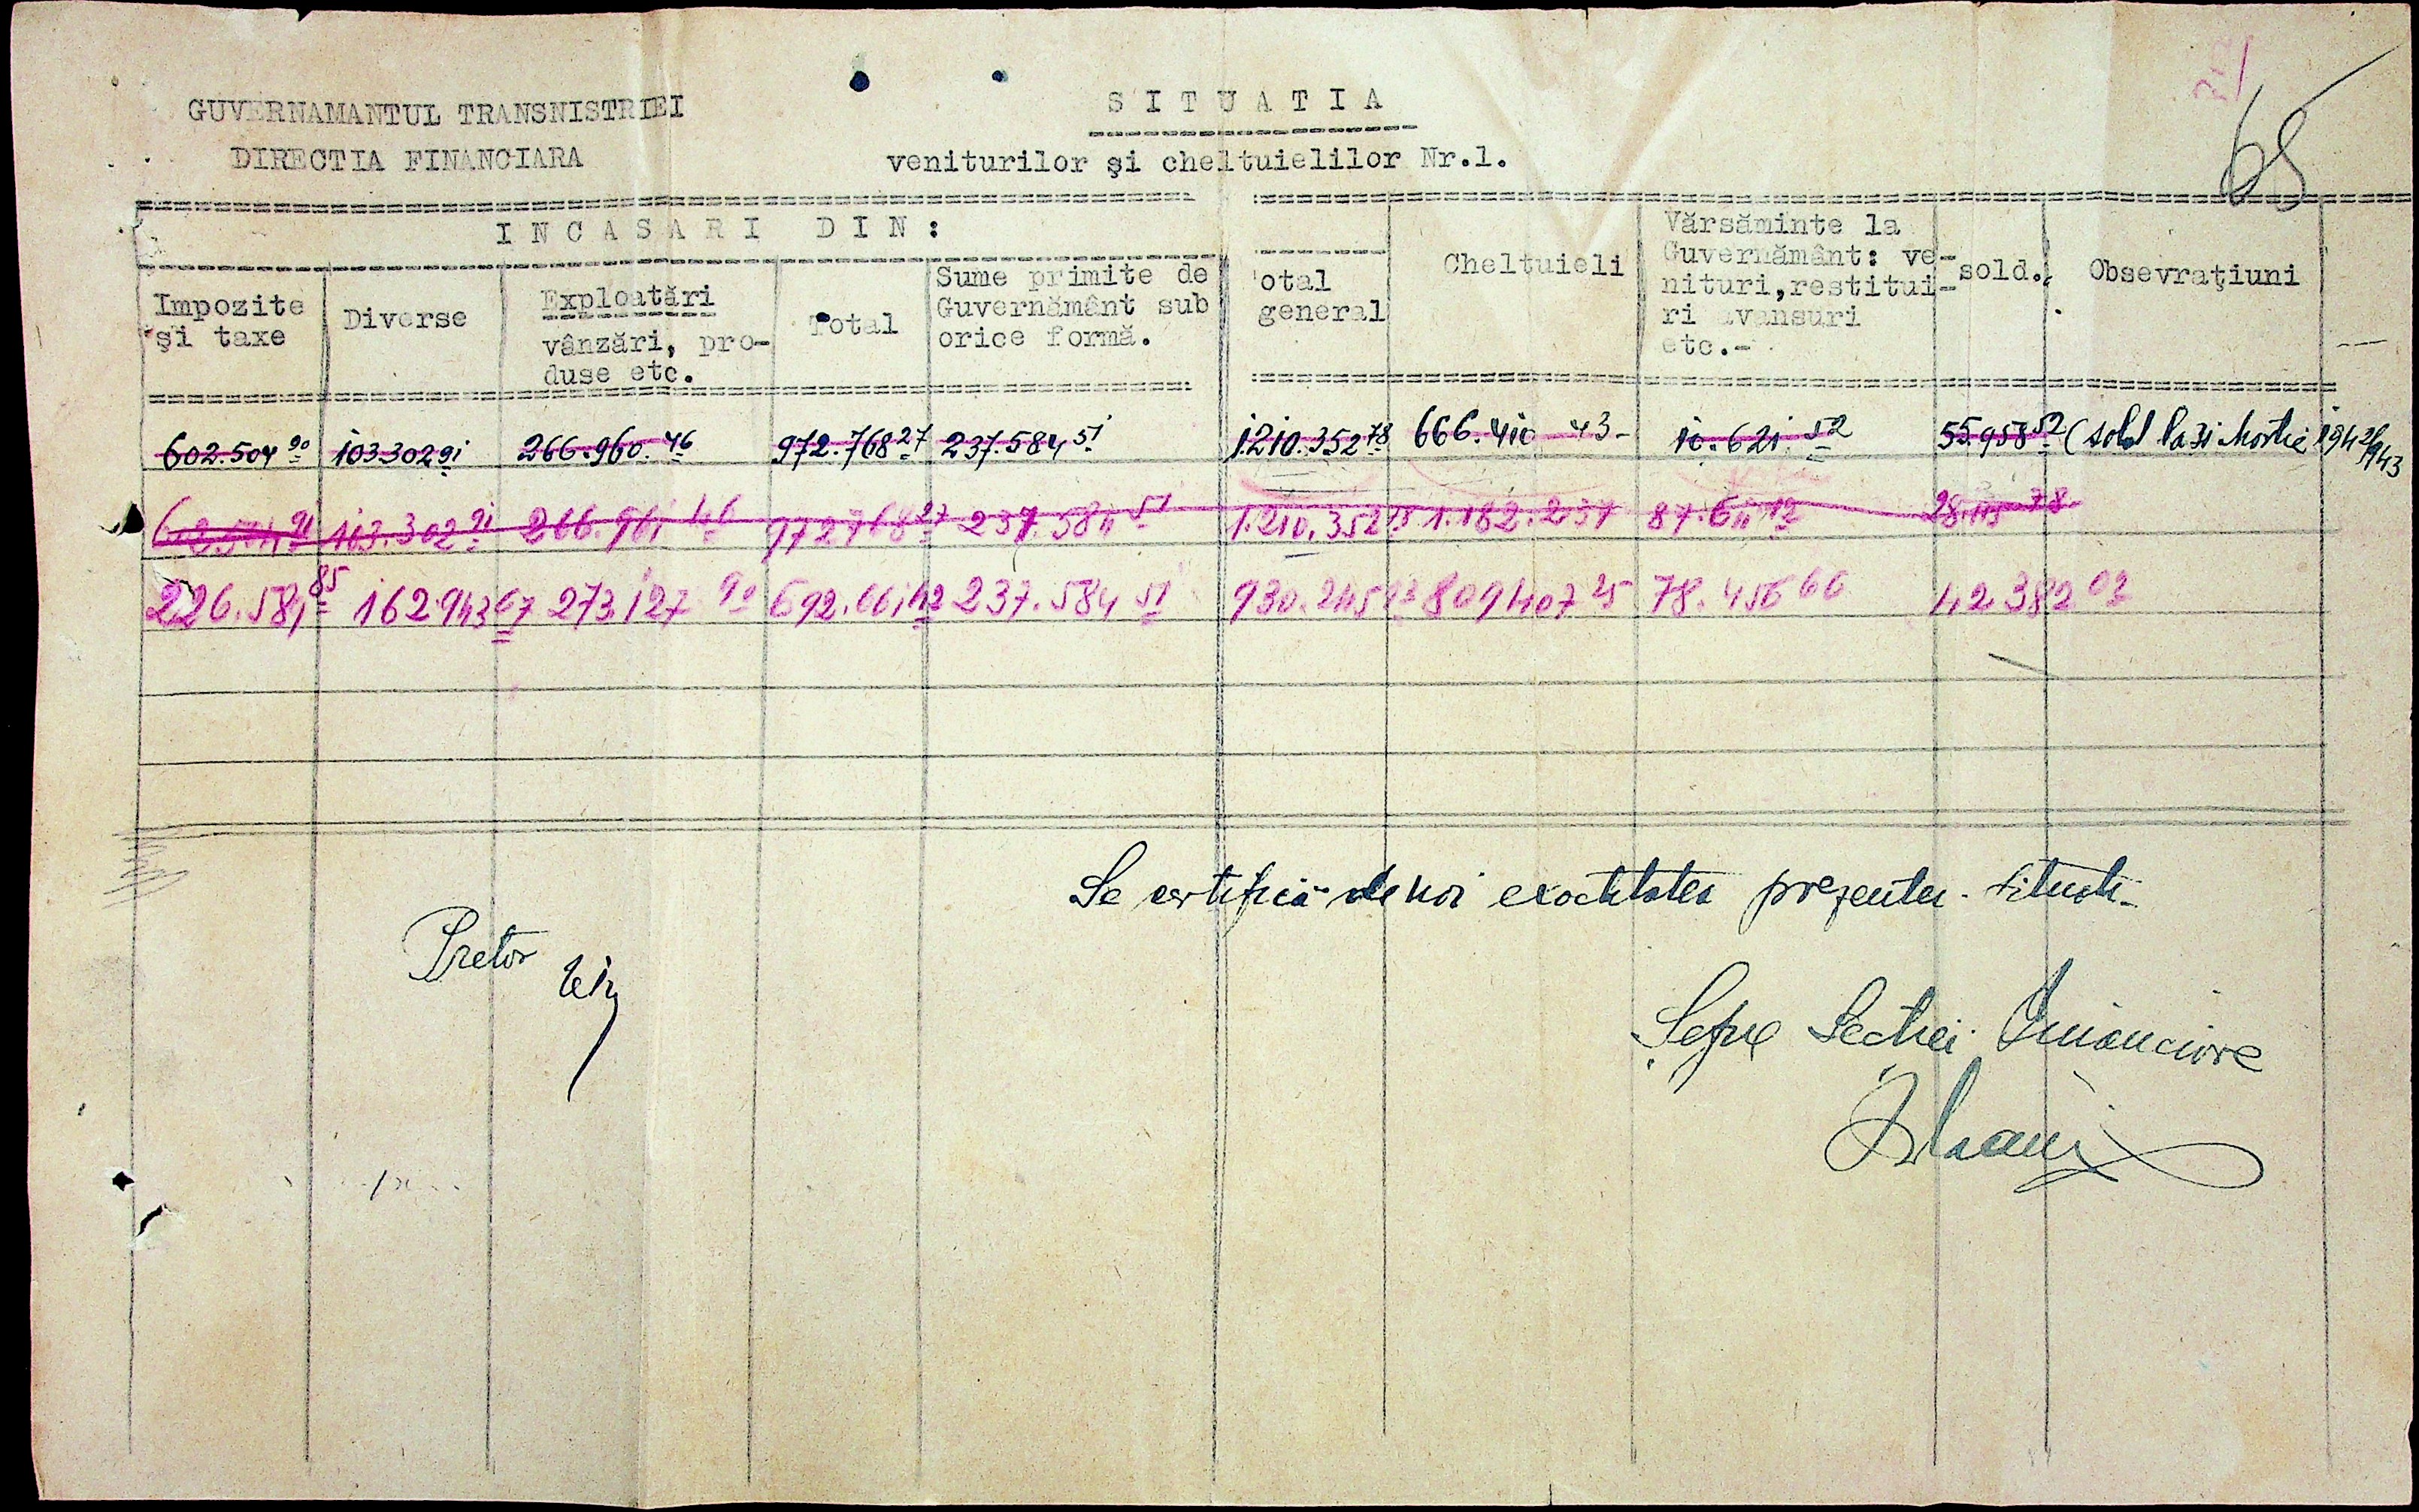 GUVERNAMANTUL TRANSNISTRIEI
DIRECTIA FINANCIARA
S I T U A T I A
veniturilor şi cheltuielilor Nr.1.
65
I N C A S A R I   D I N :
Impozite
şi taxe
Diverse
Exploatări
vânzări, pro-
duse etc.
Total
Sume primite de
Guvernământ sub
orice formă.
otal
general
Cheltuieli
Vărsăminte la
Guvernământ: ve-
nituri,restitui-
ri avansuri
etc.-
sold.
Obsevraţiuni
602.504 90 103.302 91 266.960.46 972.768 27 237.584 51 1.210.352 78 666.410 43- 10.621 52 55.958 52 (sold la 31 Martie 194
943
103.302 91 266.961 46 972768 27 237.584 51 1.210.352 78 1.182.237 87.611 12 28.115 78
226.581 85 162.943 67 273.127 90 692.661 42 237.584 51 930.245 93 809407 25 78.456 66 42382 02
Se certifică de noi exactitatea prezentei situati-
Pretor
Şeful Secţiei Financiare